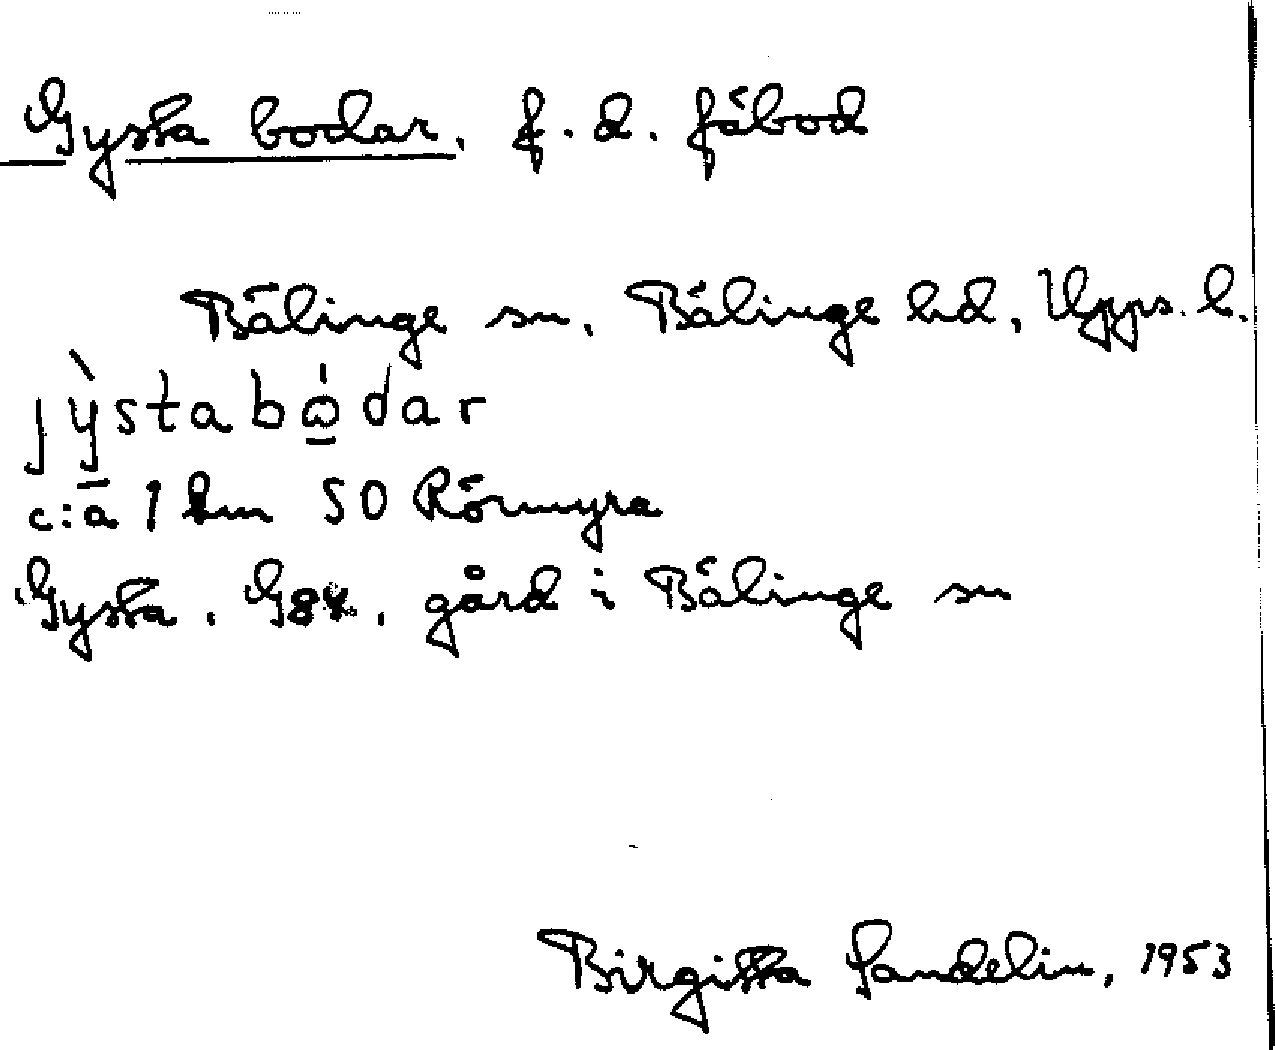 Gysta bodar. f. d. fäbod
Bälinge sn, Bälinge hd, Upps. l.
jỳstabώ̲dar
c:a 1 km SO Rörmyra
Gysta. G84. gård i Bälinge sn
Birgitta Sandelin, 1953